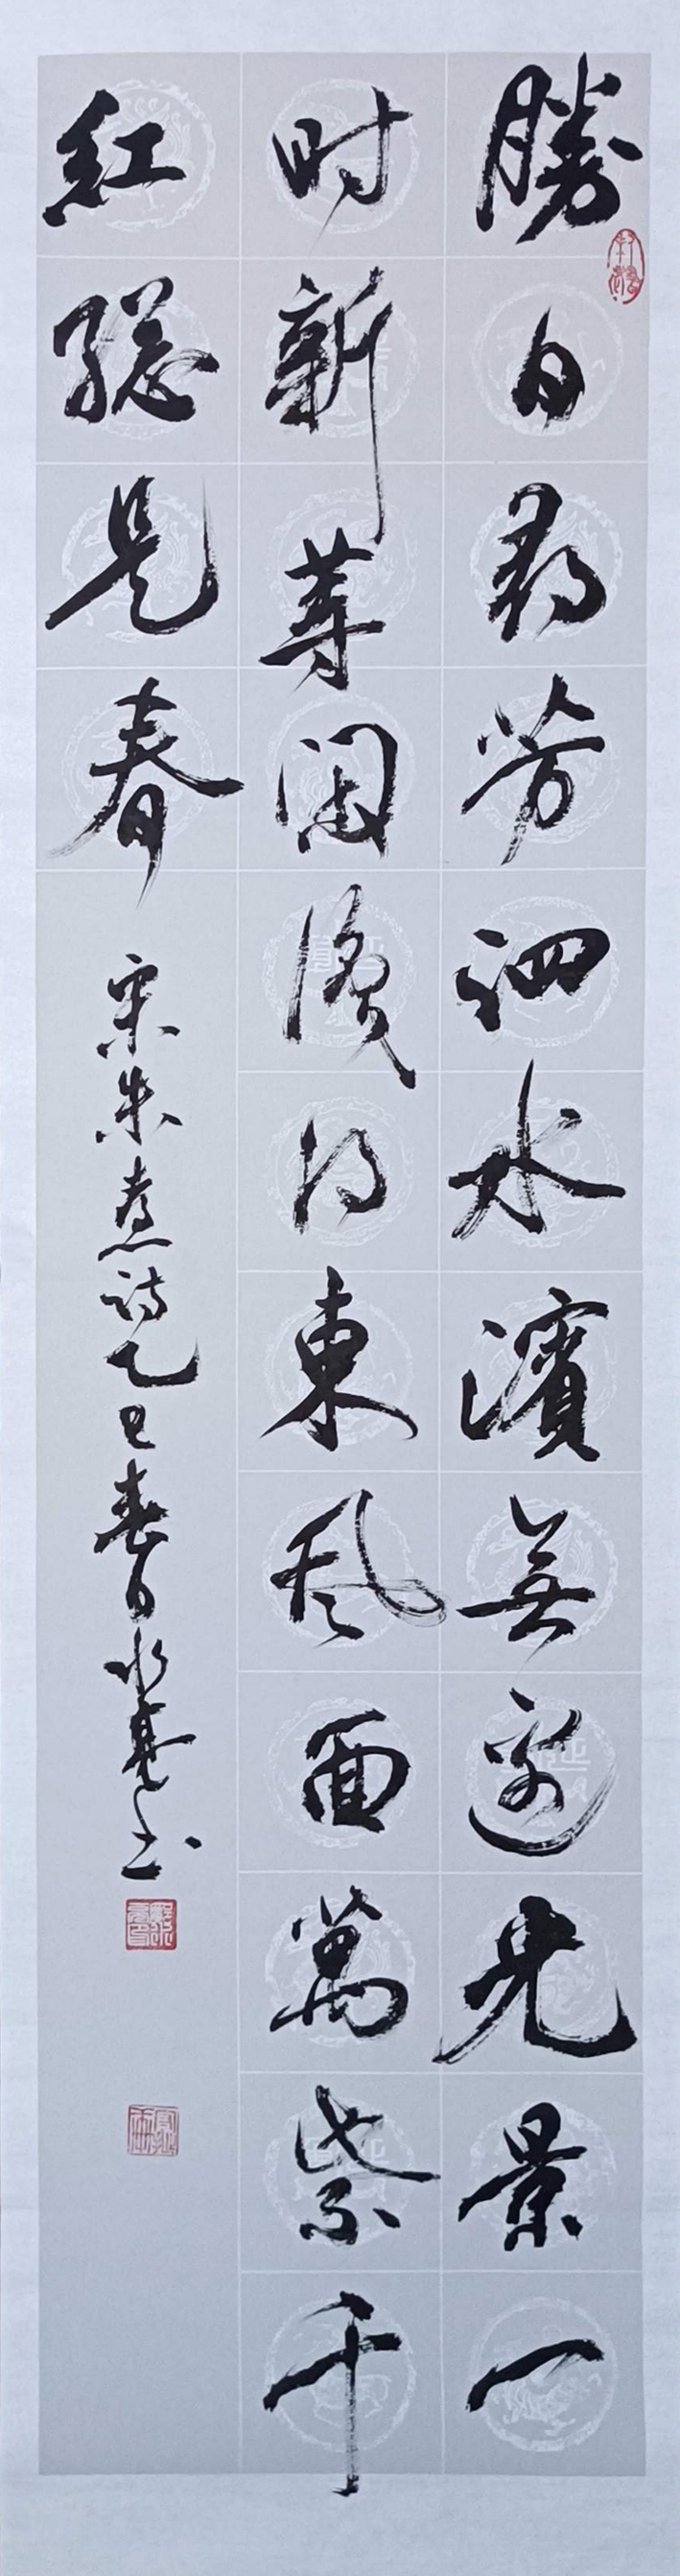 勝日尋芳泗水濱無邊光景一
时新等閒識得東風面萬紫千
紅総是春
宋朱熹詩乙巳春日书